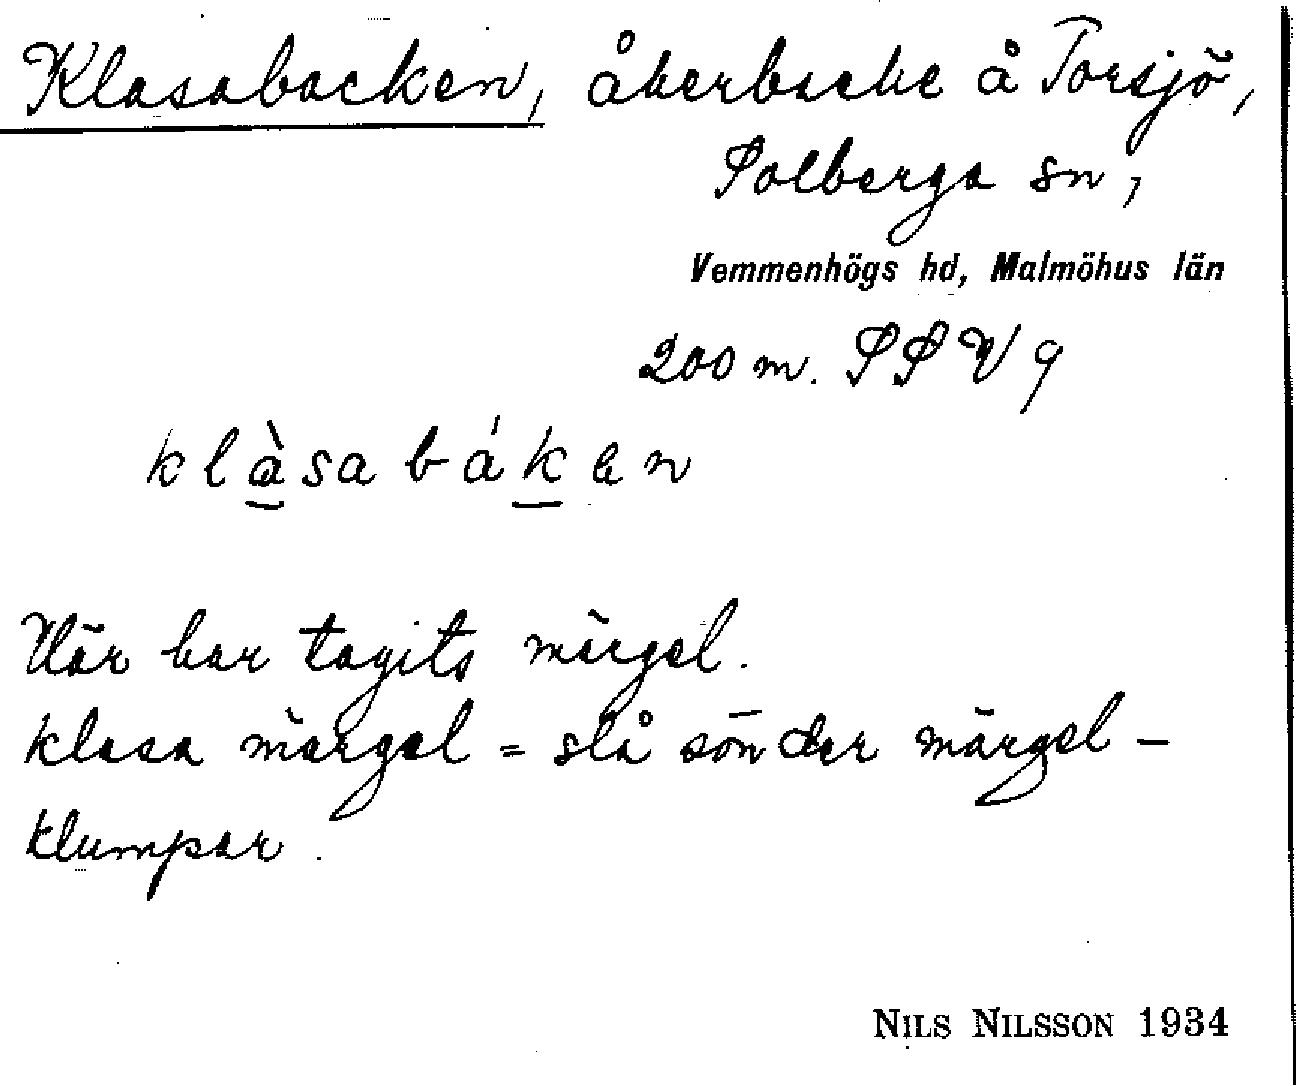 Klasabacken, åkerbacke å Torsjö,
Solberga sn,
Vemmenhögs hd, Malmöhus län
200 m. SSV 9
klàsa báken
Här har tagits märgel.
klasa märgel = slå sönder märgel-
klumpar.
NILS NILSSON 1934